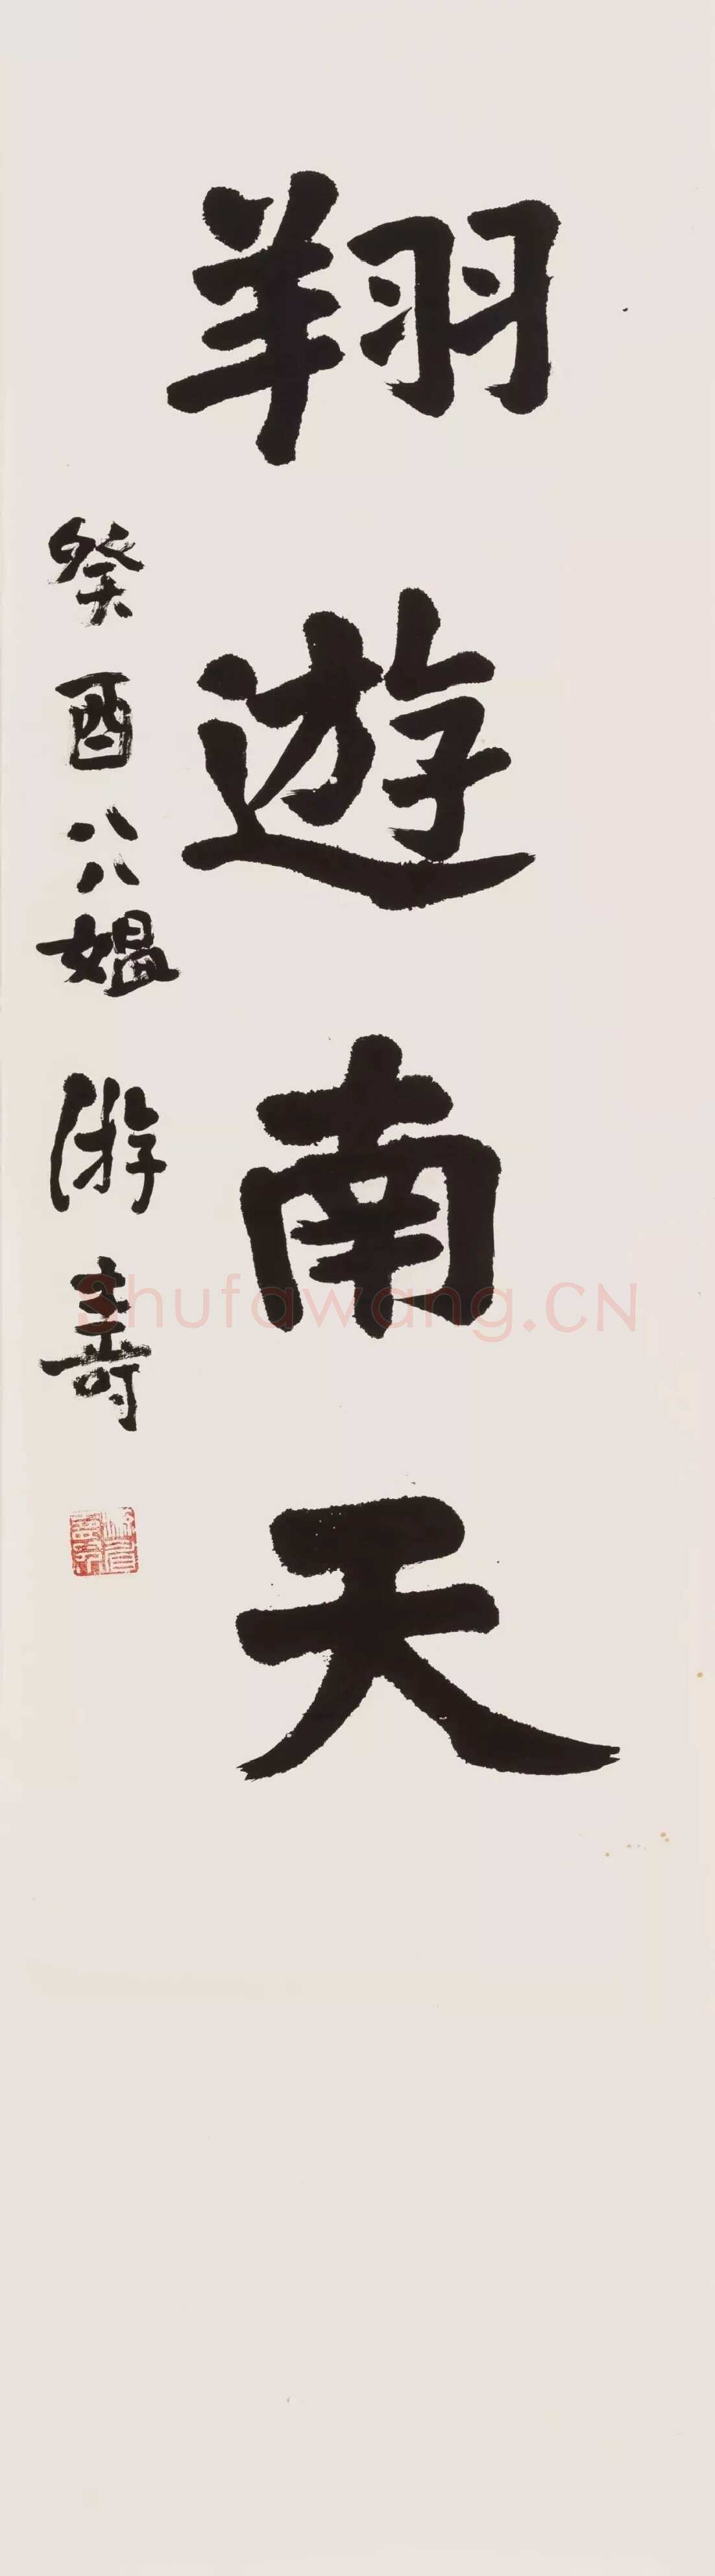 翔遊南天
癸酉八八媪游壽
Shufawang.CN